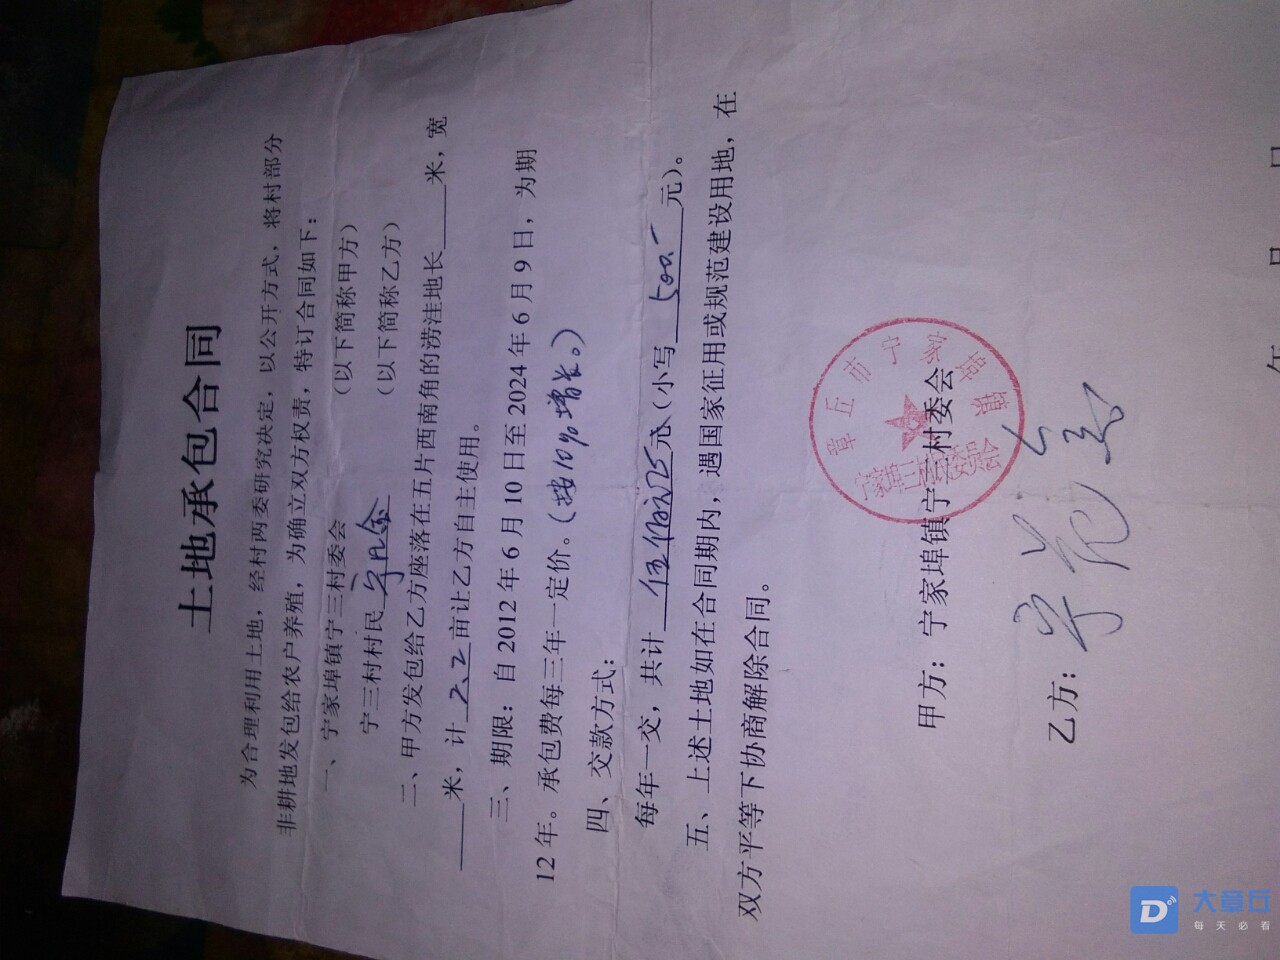 土地承包合同
为合理利用土地，经村两委研究决定，以公开方式，将村部分
非耕地发包给农户养殖，为确立双方权责，特订合同如下：
一、宁家埠镇宁三村村委会（以下简称甲方）
宁三村村民（以下简称乙方）
二、甲方发包给乙方座落在五片西南角的涝洼地长____米，宽
____米，计2.2亩让乙方自主使用。
三、期限：自2012年6月10日至2024年6月9日，为期
12年。承包费每三年一定价。（按10%增长。）
四、交款方式：
每年一交，共计元（小写500.-元）。
五、上述土地如在合同期内，遇国家征用或规范建设用地，在
双方平等下协商解除合同。
甲方：宁家埠镇宁三村村委会
章丘市宁家埠镇
乙方：
年 月 日
大章丘
每天必看